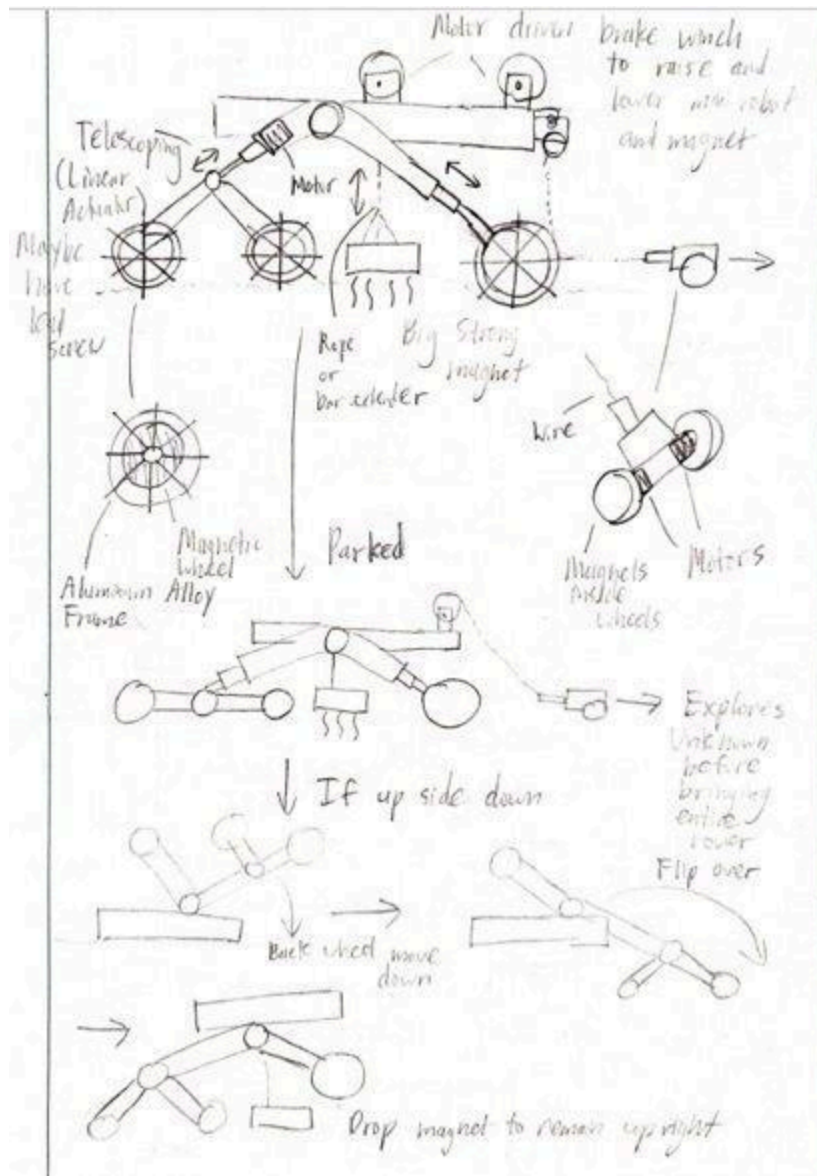 Motor driven brake winch
to raise and
lower mini robot
and magnet
Telescoping
(Linear
Actuator
Motor
Maybe
have
lead
screw
Rope
or
bar extender
Big Strong
magnet
Wire
Magnetic
Wheel
Alloy
Aluminum
Frame
Parked
Magnets
inside
wheels
Motors
Explores
Unknown
before
bringing
entire
rover
If up side down
Back wheel move
down
Flip over
Drop magnet to remain upright